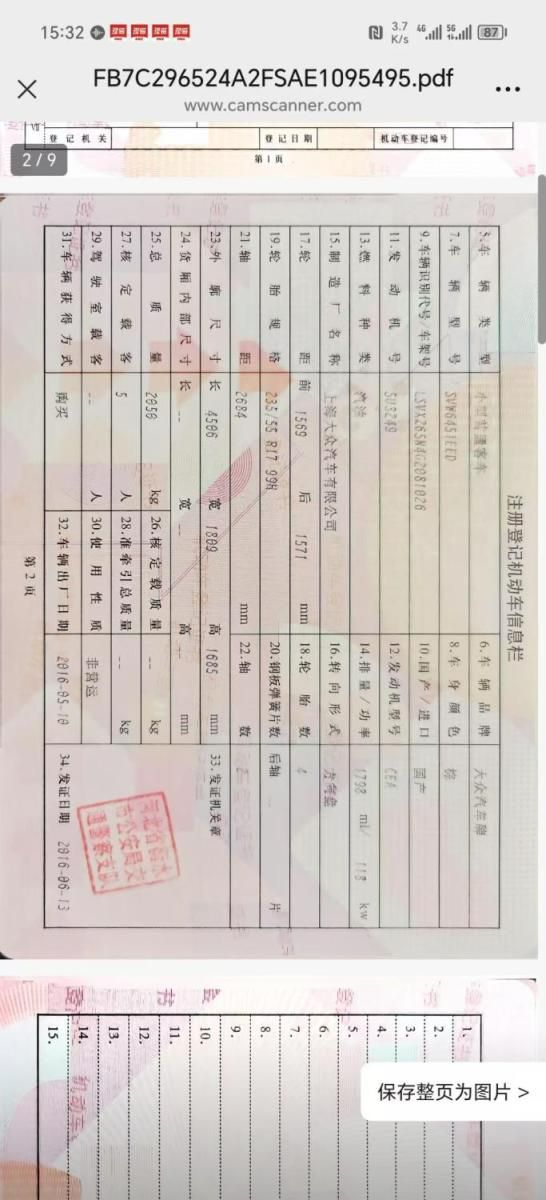 15:32
3.7 K/s 4G 5G 87
FB7C296524A2FSAE1095495.pdf
www.camscanner.com
2 / 9
登记机关 登记日期 机动车登记编号
第1页
注册登记机动车信息栏
5.车辆类型 小型普通客车 6.车辆品牌 大众汽车牌
7.车辆型号 SVW6451EED 8.车身颜色 棕
9.车辆识别代号/车架号 LSVXZ65N4G2081026 10.国产/进口 国产
11.发动机号 5U3249 12.发动机型号 CEA
13.燃料种类 汽油 14.排量/功率 1798 ml/ 118 kw
15.制造厂名称 上海大众汽车有限公司 16.转向形式 方向盘
17.轮距 前 1569 后 1571 mm 18.轮胎数 4
19.轮胎规格 235/55 R17 99H 20.钢板弹簧片数 后轴 片
21.轴距 2684 mm 22.轴数
23.外廓尺寸 长 4506 宽 1809 高 1685 mm 33.发证机关章
24.货厢内部尺寸 长 -- 宽 -- 高 -- mm
25.总质量 2050 kg 26.核定载质量 -- kg
27.核定载客 5 人 28.准牵引总质量 -- kg
29.驾驶室载客 -- 人 30.使用性质 非营运
31.车辆获得方式 购买 32.车辆出厂日期 2016-05-10 34.发证日期 2016-06-13
第2页
1.
2.
3.
4.
5.
6.
7.
8.
9.
10.
11.
12.
13.
14.
15.
机动车
保存整页为图片 >